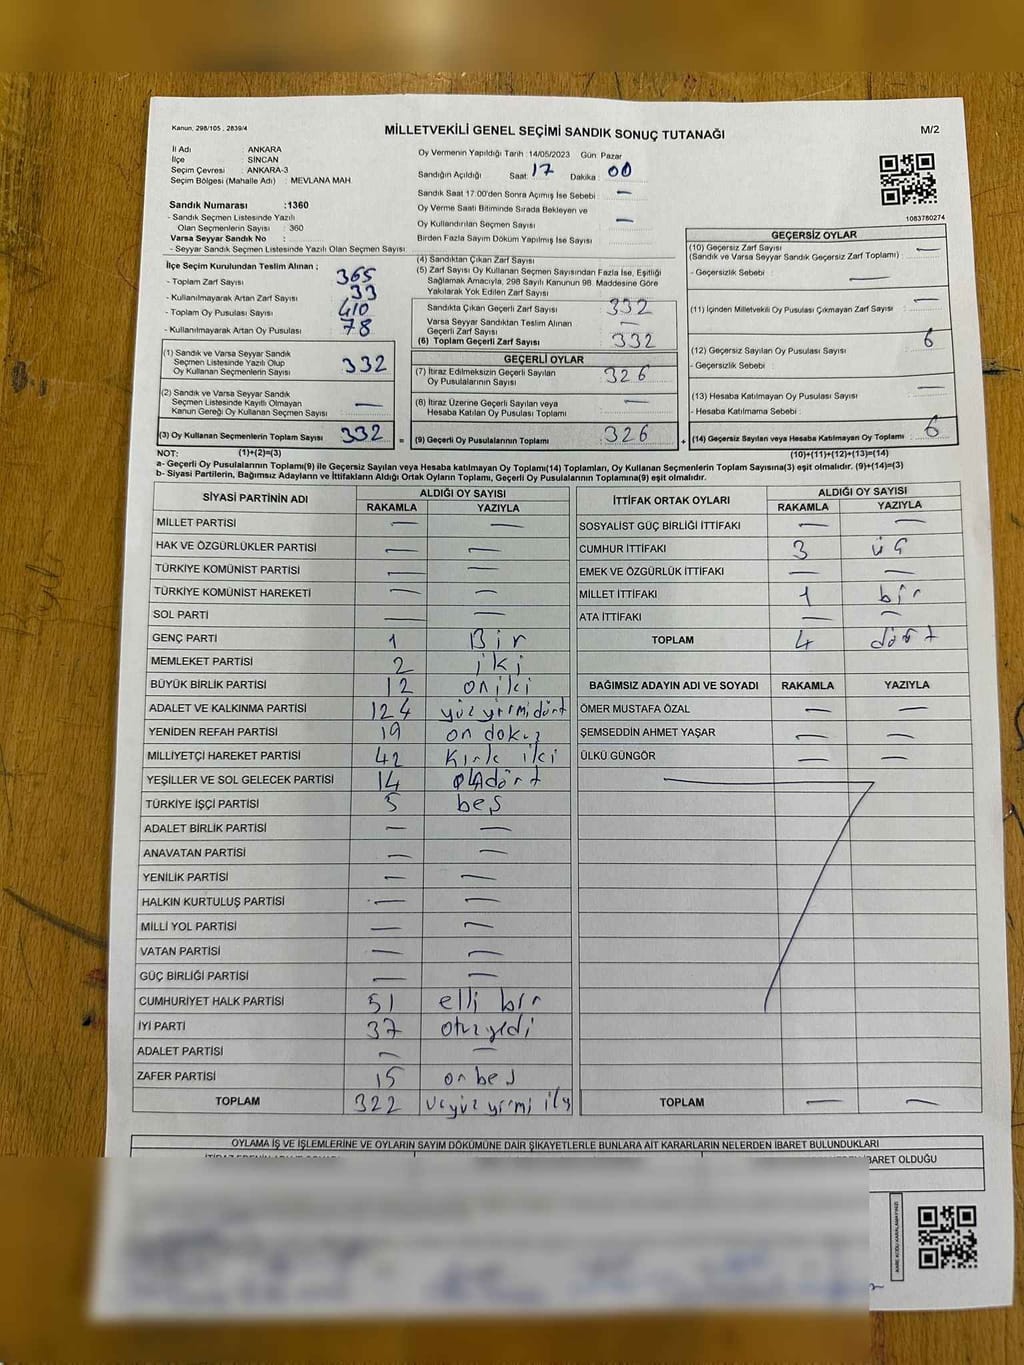 Kanun, 298/105 , 2839/4
MİLLETVEKİLİ GENEL SEÇİMİ SANDIK SONUÇ TUTANAĞI
M/2
İl Adı : ANKARA
İlçe : SİNCAN
Seçim Çevresi : ANKARA-3
Seçim Bölgesi (Mahalle Adı) : MEVLANA MAH.
Sandık Numarası :1360
- Sandık Seçmen Listesinde Yazılı
Olan Seçmenlerin Sayısı : 360
Varsa Seyyar Sandık No :
- Seyyar Sandık Seçmen Listesinde Yazılı Olan Seçmen Sayısı :
Oy Vermenin Yapıldığı Tarih :14/05/2023 Gün: Pazar
Sandığın Açıldığı Saat: 17 Dakika : 00
Sandık Saat 17.00'den Sonra Açılmış İse Sebebi : —
Oy Verme Saati Bitiminde Sırada Bekleyen ve
Oy Kullandırılan Seçmen Sayısı : —
Birden Fazla Sayım Döküm Yapılmış İse Sayısı :
1083780274
İlçe Seçim Kurulundan Teslim Alınan ;
- Toplam Zarf Sayısı : 365
- Kullanılmayarak Artan Zarf Sayısı : 33
- Toplam Oy Pusulası Sayısı : 410
- Kullanılmayarak Artan Oy Pusulası : 78
(1) Sandık ve Varsa Seyyar Sandık
Seçmen Listesinde Yazılı Olup
Oy Kullanan Seçmenlerin Sayısı : 332
(2) Sandık ve Varsa Seyyar Sandık
Seçmen Listesinde Kayıtlı Olmayan
Kanun Gereği Oy Kullanan Seçmen Sayısı : —
(3) Oy Kullanan Seçmenlerin Toplam Sayısı : 332 =
(4) Sandıktan Çıkan Zarf Sayısı :
(5) Zarf Sayısı Oy Kullanan Seçmen Sayısından Fazla İse, Eşitliği
Sağlamak Amacıyla, 298 Sayılı Kanunun 98. Maddesine Göre
Yakılarak Yok Edilen Zarf Sayısı :
Sandıkta Çıkan Geçerli Zarf Sayısı : 332
Varsa Seyyar Sandıktan Teslim Alınan
Geçerli Zarf Sayısı : —
(6) Toplam Geçerli Zarf Sayısı : 332
GEÇERLİ OYLAR
(7) İtiraz Edilmeksizin Geçerli Sayılan
Oy Pusulalarının Sayısı : 326
(8) İtiraz Üzerine Geçerli Sayılan veya
Hesaba Katılan Oy Pusulası Toplamı : —
(9) Geçerli Oy Pusulalarının Toplamı : 326 +
GEÇERSİZ OYLAR
(10) Geçersiz Zarf Sayısı —
(Sandık ve Varsa Seyyar Sandık Geçersiz Zarf Toplamı) :
- Geçersizlik Sebebi : —
(11) İçinden Milletvekili Oy Pusulası Çıkmayan Zarf Sayısı: —
(12) Geçersiz Sayılan Oy Pusulası Sayısı : 6
- Geçersizlik Sebebi :
(13) Hesaba Katılmayan Oy Pusulası Sayısı : —
- Hesaba Katılmama Sebebi :
(14) Geçersiz Sayılan veya Hesaba Katılmayan Oy Toplamı : 6
NOT: (1)+(2)=(3) (10)+(11)+(12)+(13)=(14)
a- Geçerli Oy Pusulalarının Toplamı(9) ile Geçersiz Sayılan veya Hesaba katılmayan Oy Toplamı(14) Toplamları, Oy Kullanan Seçmenlerin Toplam Sayısına(3) eşit olmalıdır. (9)+(14)=(3)
b- Siyasi Partilerin, Bağımsız Adayların ve İttifakların Aldığı Ortak Oyların Toplamı, Geçerli Oy Pusulalarının Toplamına(9) eşit olmalıdır.
SİYASİ PARTİNİN ADI ALDIĞI OY SAYISI
RAKAMLA YAZIYLA
MİLLET PARTİSİ — —
HAK VE ÖZGÜRLÜKLER PARTİSİ — —
TÜRKİYE KOMÜNİST PARTİSİ — —
TÜRKİYE KOMÜNİST HAREKETİ — —
SOL PARTİ — —
GENÇ PARTİ 1 Bir
MEMLEKET PARTİSİ 2 iki
BÜYÜK BİRLİK PARTİSİ 12 oniki
ADALET VE KALKINMA PARTİSİ 124 yüz yirmidört
YENİDEN REFAH PARTİSİ 19 on dokuz
MİLLİYETÇİ HAREKET PARTİSİ 42 Kırk iki
YEŞİLLER VE SOL GELECEK PARTİSİ 14 ondört
TÜRKİYE İŞÇİ PARTİSİ 5 beş
ADALET BİRLİK PARTİSİ — —
ANAVATAN PARTİSİ — —
YENİLİK PARTİSİ — —
HALKIN KURTULUŞ PARTİSİ — —
MİLLİ YOL PARTİSİ — —
VATAN PARTİSİ — —
GÜÇ BİRLİĞİ PARTİSİ — —
CUMHURİYET HALK PARTİSİ 51 elli bir
İYİ PARTİ 37 otuzyedi
ADALET PARTİSİ — —
ZAFER PARTİSİ 15 onbeş
TOPLAM 322 üçyüz yirmi iki
İTTİFAK ORTAK OYLARI ALDIĞI OY SAYISI
RAKAMLA YAZIYLA
SOSYALİST GÜÇ BİRLİĞİ İTTİFAKI — —
CUMHUR İTTİFAKI 3 üç
EMEK VE ÖZGÜRLÜK İTTİFAKI — —
MİLLET İTTİFAKI 1 bir
ATA İTTİFAKI — —
TOPLAM 4 dört
BAĞIMSIZ ADAYIN ADI VE SOYADI RAKAMLA YAZIYLA
ÖMER MUSTAFA ÖZAL — —
ŞEMSEDDİN AHMET YAŞAR — —
ÜLKÜ GÜNGÖR — —
TOPLAM — —
OYLAMA İŞ VE İŞLEMLERİNE VE OYLARIN SAYIM DÖKÜMÜNE DAİR ŞİKAYETLERLE BUNLARA AİT KARARLARIN NELERDEN İBARET BULUNDUKLARI
İBARET OLDUĞU